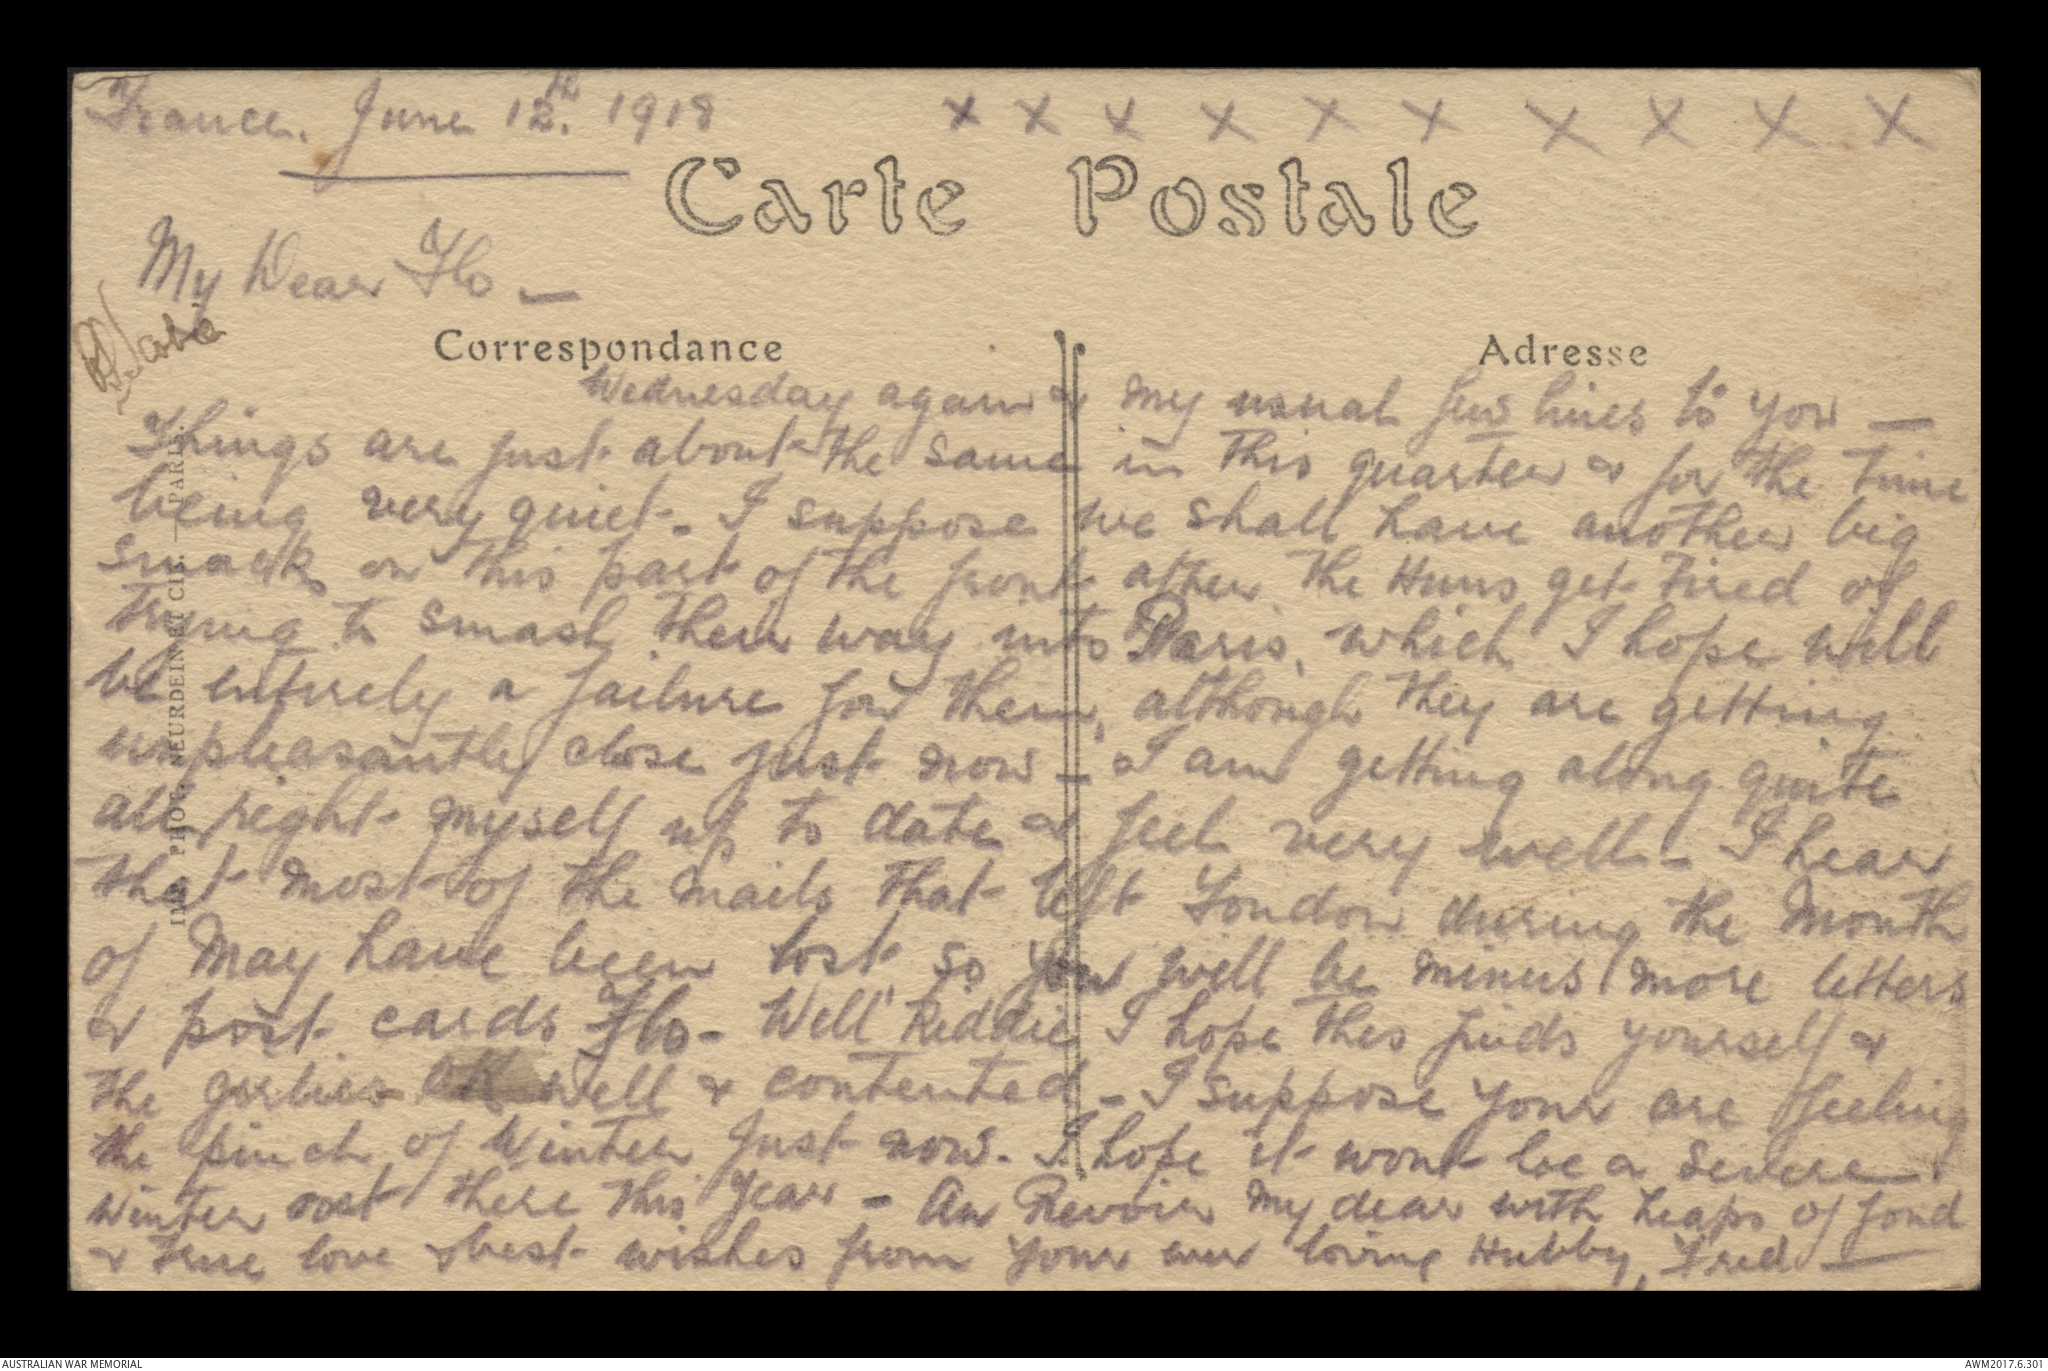 France. June 12th. 1918 x x x x x x x x x x
Carte Postale
My Dear Flo —
Correspondance
Adresse
Wednesday again & my usual few lines to you —
Things are just about the same in this quarter & for the time
being very quiet - I suppose we shall have another big
smack on this part of the front after the Huns get tired of
trying to smash their way into Paris, which I hope will
be entirely a failure for them, although they are getting
unpleasantly close just now - I am getting along quite
all right myself up to date & feel very well - I hear
that most of the mails that left London during the Month
of May have been lost so you will be minus more letters
& post cards Flo - Well Kiddie I hope this finds yourself &
the girlies all well & contented - I suppose your are feeling
the pinch of Winter just now. I hope it wont be a severe
winter out there this year - Au Revoir my dear with heaps of fond
& true love & best wishes from your ever loving Hubby, Fred —
IMP. PHOT. NEURDEIN ET CIE. — PARIS.
AUSTRALIAN WAR MEMORIAL
AWM2017.6.301